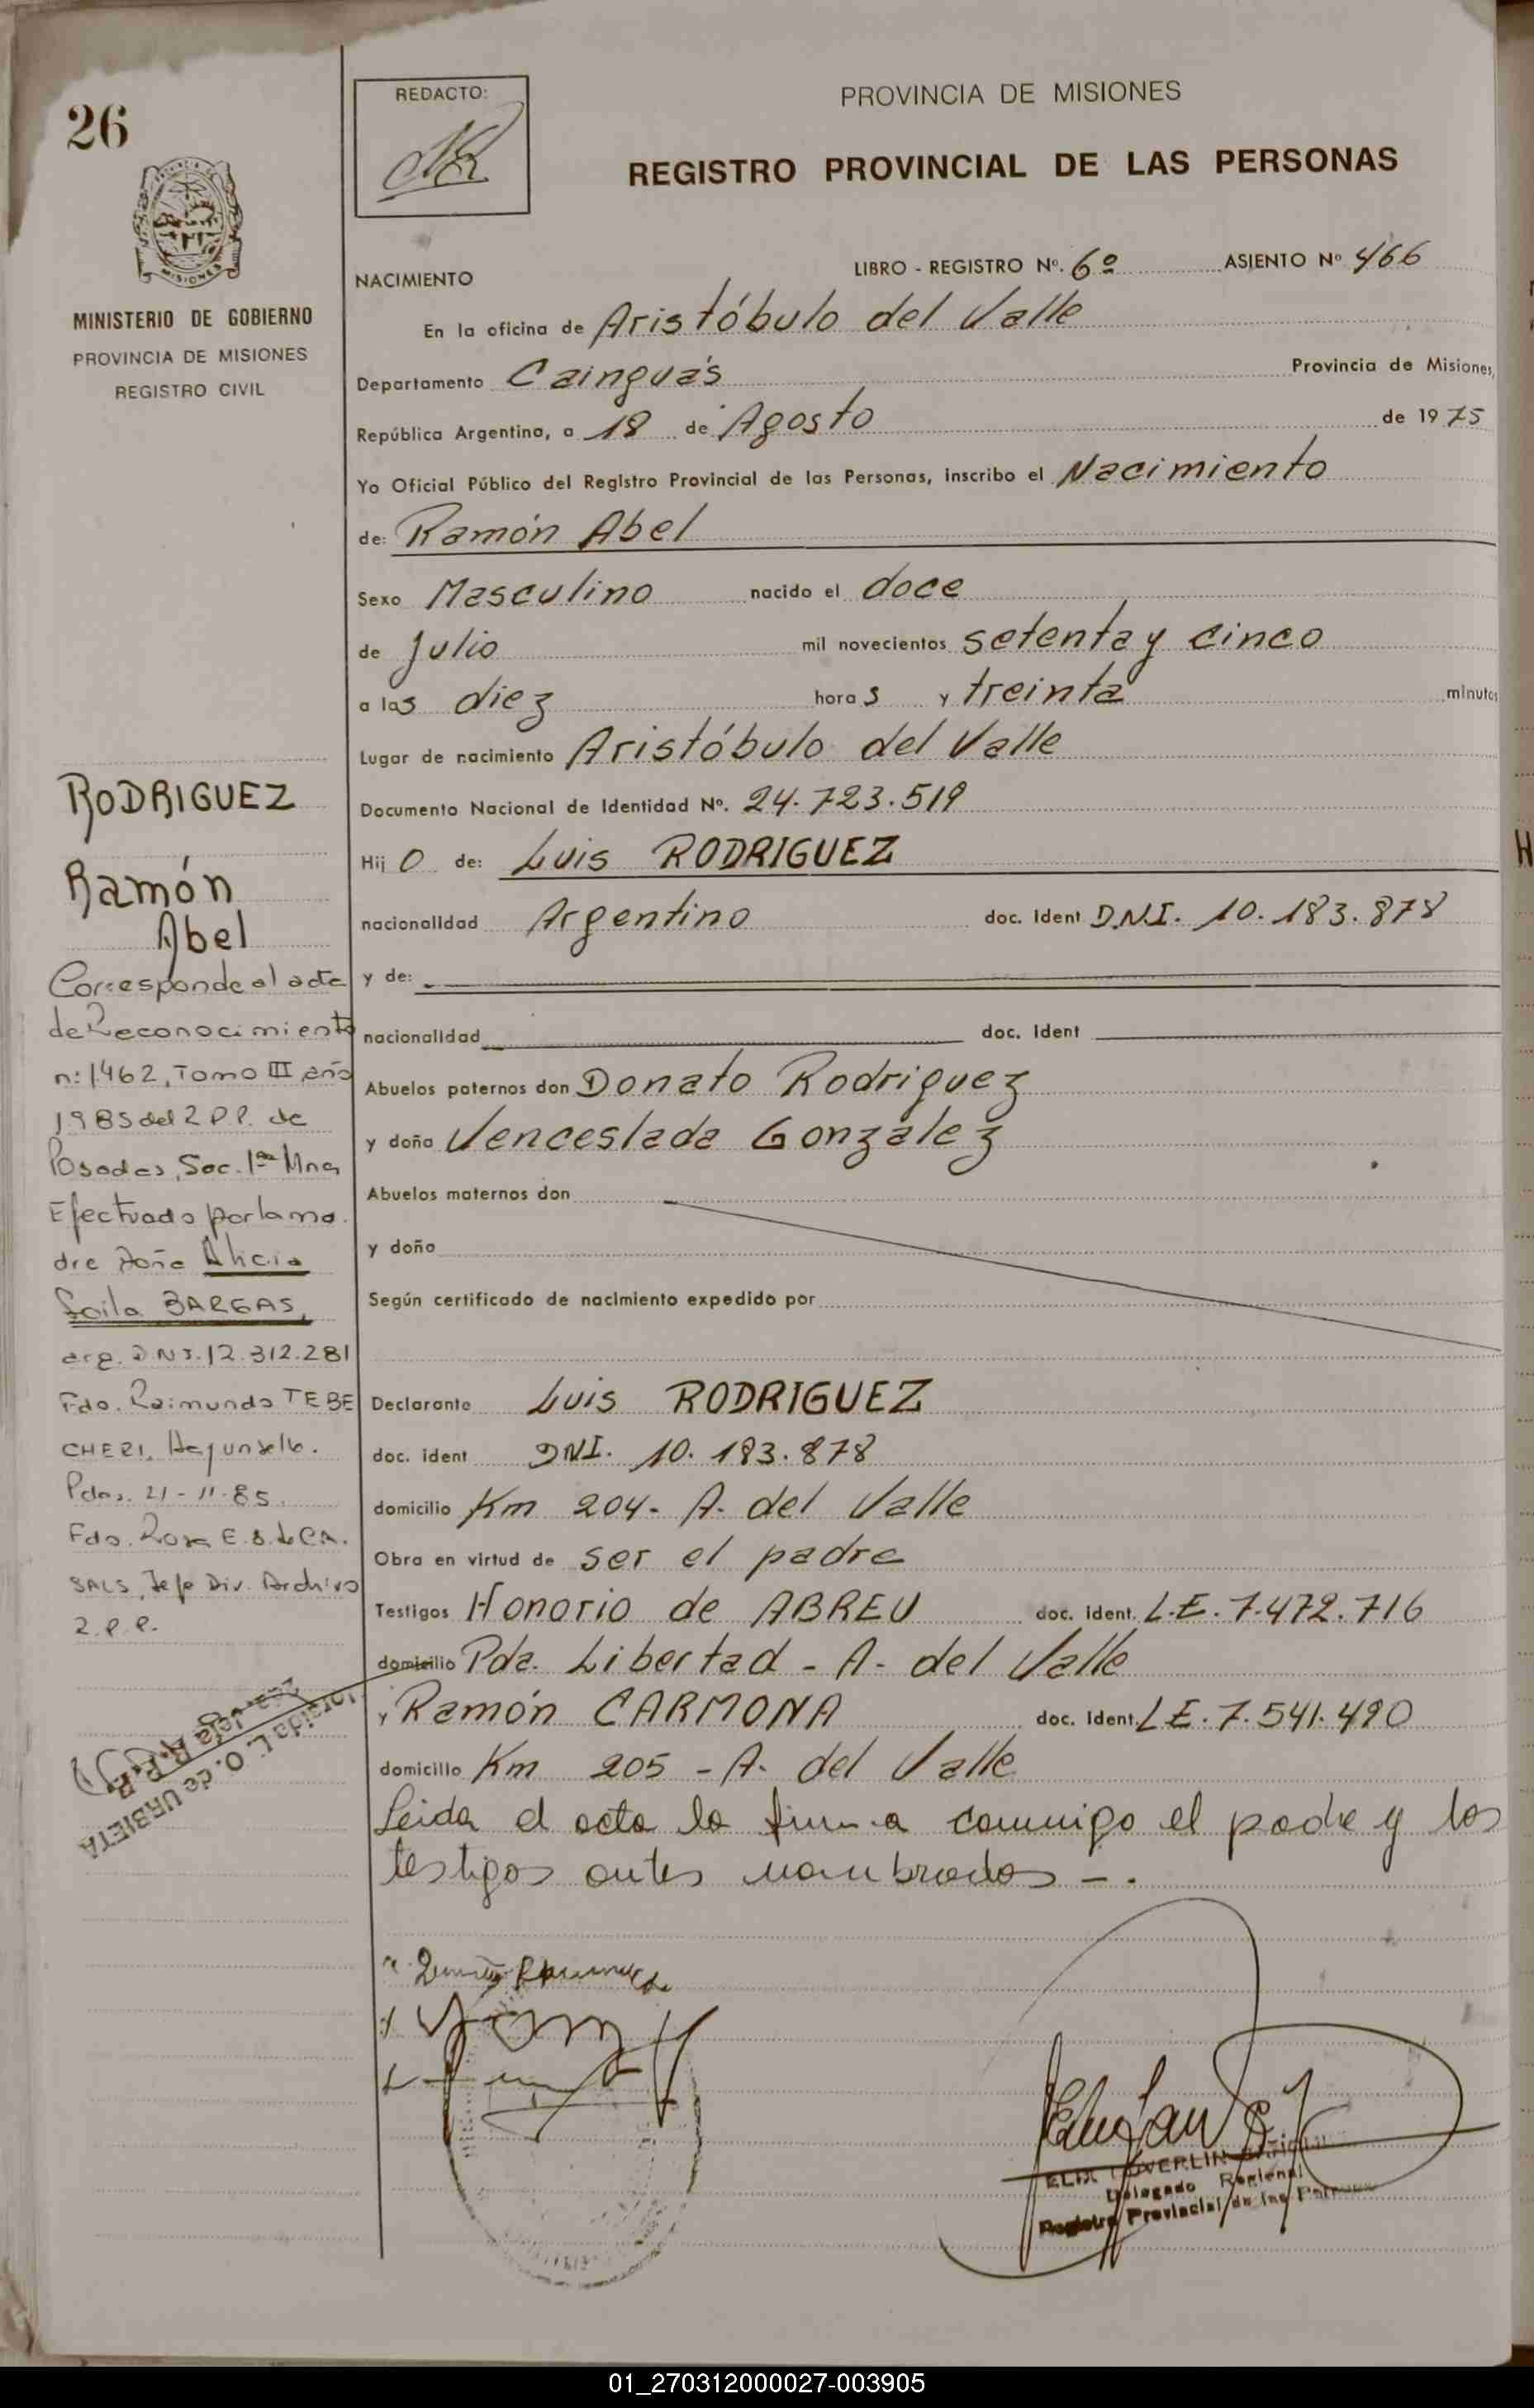 26
REDACTO:
PROVINCIA DE MISIONES
REGISTRO PROVINCIAL DE LAS PERSONAS
MISIONES
MINISTERIO DE GOBIERNO
PROVINCIA DE MISIONES
REGISTRO CIVIL
NACIMIENTO
LIBRO - REGISTRO Nº. 6º ASIENTO Nº 466
En la oficina de Aristóbulo del Valle
Departamento Cainguás Provincia de Misiones,
República Argentina, a 18 de Agosto de 1975
Yo Oficial Público del Registro Provincial de las Personas, inscribo el Nacimiento
de: Ramón Abel
Sexo Masculino nacido el doce
de Julio mil novecientos setenta y cinco
a las diez horas y treinta minutos
Lugar de nacimiento Aristóbulo del Valle
Documento Nacional de Identidad Nº. 24.723.519
Hijo de: Luis RODRIGUEZ
nacionalidad Argentino doc. Ident D.N.I. 10.183.878
y de:
nacionalidad doc. Ident
Abuelos paternos don Donato Rodriguez
y doña Venceslada González
Abuelos maternos don
y doña
Según certificado de nacimiento expedido por
Declarante Luis RODRIGUEZ
doc. ident DNI. 10.183.878
domicilio Km 204- A. del Valle
Obra en virtud de ser el padre
Testigos Honorio de ABREU doc. ident. L.E. 7.472.716
domicilio Pda. Libertad - A- del Valle
y Ramón CARMONA doc. Ident. LE. 7.541.490
domicilio Km 205 - A. del Valle
Leida el acta la firma conmigo el padre y los
testigos antes nombrados -.
RODRIGUEZ
Ramón
Abel
Corresponde al acta
de Reconocimiento
n: 1462, Tomo III año
1985 del R.P.P. de
Posadas, Sec. 1ra Mna
Efectuado por la ma
dre doña Alicia
Soila BARGAS,
arg. DNI. 12.312.281
Fdo. Raimundo TEBE
CHERI,
Pdas. 21-11-85.
Fdo. Rosa E. S. de CA.
SALS, Jefe Div. Archivo
R.P.P.
L. O. de URBIETA
2da. Jefa R. P. P.
Delegado Regional
Registro Provincial de las Personas
01_270312000027-003905